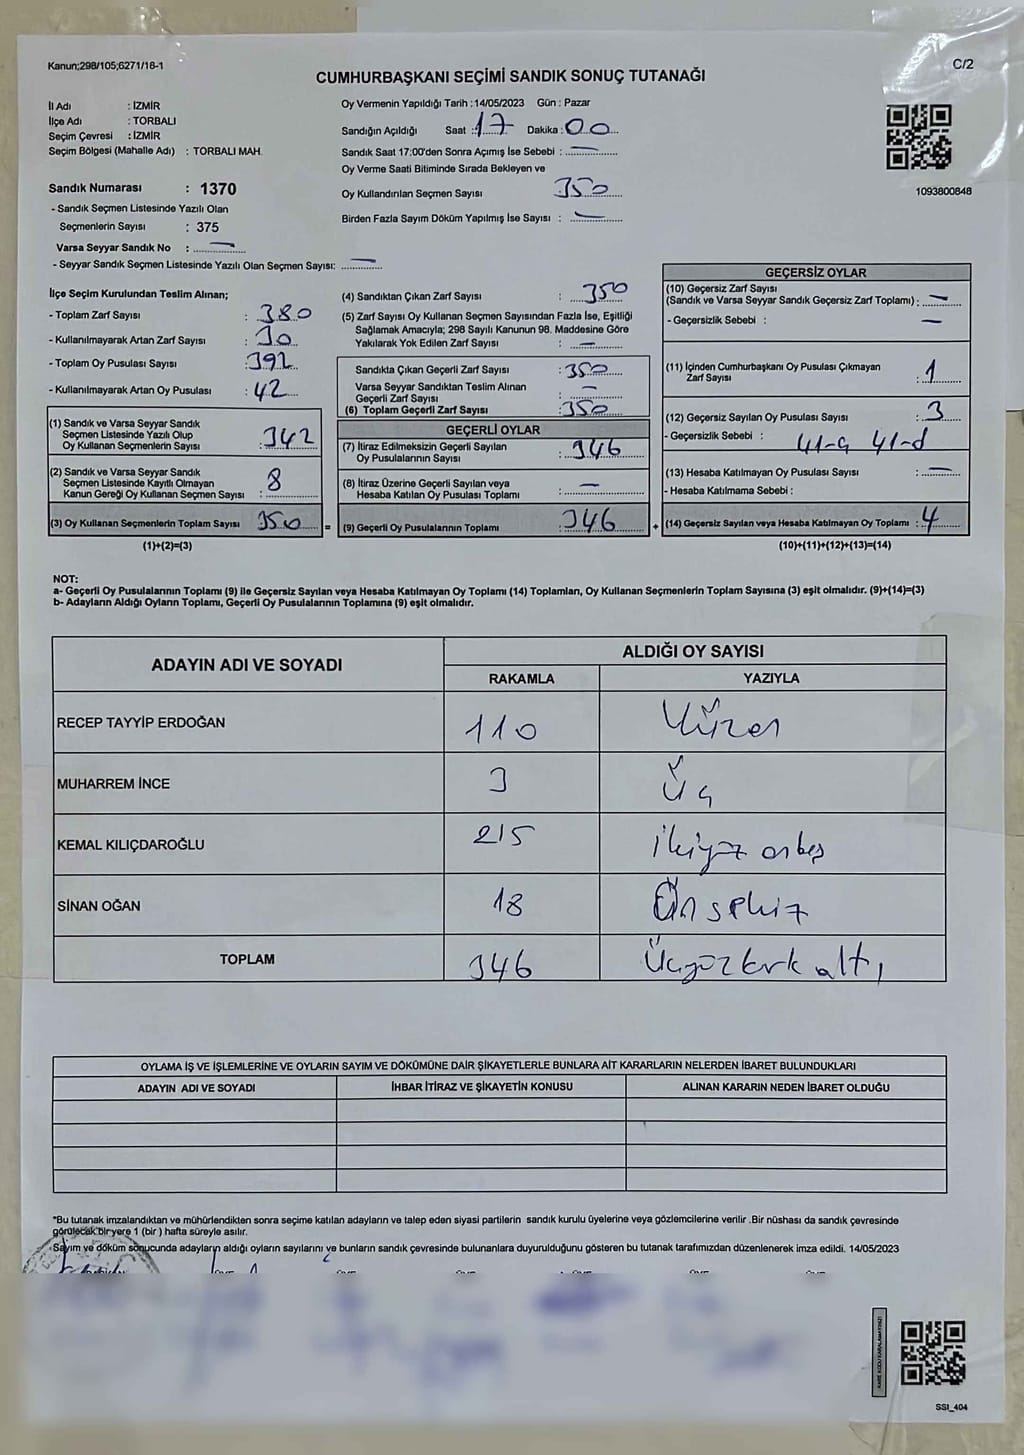 Kanun;298/105;6271/18-1
C/2
CUMHURBAŞKANI SEÇİMİ SANDIK SONUÇ TUTANAĞI
İl Adı : İZMİR
İlçe Adı : TORBALI
Seçim Çevresi : İZMİR
Seçim Bölgesi (Mahalle Adı) : TORBALI MAH.
Sandık Numarası : 1370
- Sandık Seçmen Listesinde Yazılı Olan
Seçmenlerin Sayısı : 375
Varsa Seyyar Sandık No : —
- Seyyar Sandık Seçmen Listesinde Yazılı Olan Seçmen Sayısı: —
Oy Vermenin Yapıldığı Tarih : 14/05/2023 Gün : Pazar
Sandığın Açıldığı Saat : 17 Dakika : 00
Sandık Saat 17:00'den Sonra Açımış İse Sebebi : —
Oy Verme Saati Bitiminde Sırada Bekleyen ve
Oy Kullandırılan Seçmen Sayısı 350
Birden Fazla Sayım Döküm Yapılmış İse Sayısı : —
1093800848
İlçe Seçim Kurulundan Teslim Alınan;
- Toplam Zarf Sayısı : 380
- Kullanılmayarak Artan Zarf Sayısı : 30
- Toplam Oy Pusulası Sayısı : 392
- Kullanılmayarak Artan Oy Pusulası : 42
(1) Sandık ve Varsa Seyyar Sandık
Seçmen Listesinde Yazılı Olup
Oy Kullanan Seçmenlerin Sayısı : 342
(2) Sandık ve Varsa Seyyar Sandık
Seçmen Listesinde Kayıtlı Olmayan
Kanun Gereği Oy Kullanan Seçmen Sayısı : 8
(3) Oy Kullanan Seçmenlerin Toplam Sayısı 350
(1)+(2)=(3)
=
(4) Sandıktan Çıkan Zarf Sayısı : 350
(5) Zarf Sayısı Oy Kullanan Seçmen Sayısından Fazla İse, Eşitliği
Sağlamak Amacıyla; 298 Sayılı Kanunun 98. Maddesine Göre
Yakılarak Yok Edilen Zarf Sayısı : —
Sandıkta Çıkan Geçerli Zarf Sayısı : 350
Varsa Seyyar Sandıktan Teslim Alınan
Geçerli Zarf Sayısı : —
(6) Toplam Geçerli Zarf Sayısı : 350
GEÇERLİ OYLAR
(7) İtiraz Edilmeksizin Geçerli Sayılan
Oy Pusulalarının Sayısı : 346
(8) İtiraz Üzerine Geçerli Sayılan veya
Hesaba Katılan Oy Pusulası Toplamı : —
(9) Geçerli Oy Pusulalarının Toplamı : 346
+
GEÇERSİZ OYLAR
(10) Geçersiz Zarf Sayısı
(Sandık ve Varsa Seyyar Sandık Geçersiz Zarf Toplamı) : —
- Geçersizlik Sebebi : —
(11) İçinden Cumhurbaşkanı Oy Pusulası Çıkmayan
Zarf Sayısı : 1
(12) Geçersiz Sayılan Oy Pusulası Sayısı : 3
- Geçersizlik Sebebi : 41-ç 41-d
(13) Hesaba Katılmayan Oy Pusulası Sayısı : —
- Hesaba Katılmama Sebebi :
(14) Geçersiz Sayılan veya Hesaba Katılmayan Oy Toplamı : 4
(10)+(11)+(12)+(13)=(14)
NOT:
a- Geçerli Oy Pusulalarının Toplamı (9) ile Geçersiz Sayılan veya Hesaba Katılmayan Oy Toplamı (14) Toplamları, Oy Kullanan Seçmenlerin Toplam Sayısına (3) eşit olmalıdır. (9)+(14)=(3)
b- Adayların Aldığı Oyların Toplamı, Geçerli Oy Pusulalarının Toplamına (9) eşit olmalıdır.
ADAYIN ADI VE SOYADI
ALDIĞI OY SAYISI
RAKAMLA YAZIYLA
RECEP TAYYİP ERDOĞAN 110 Yüzon
MUHARREM İNCE 3 Üç
KEMAL KILIÇDAROĞLU 215 ikiyüz onbeş
SİNAN OĞAN 18 Onsekiz
TOPLAM 346 Üçyüzkırk altı
OYLAMA İŞ VE İŞLEMLERİNE VE OYLARIN SAYIM VE DÖKÜMÜNE DAİR ŞİKAYETLERLE BUNLARA AİT KARARLARIN NELERDEN İBARET BULUNDUKLARI
ADAYIN ADI VE SOYADI İHBAR İTİRAZ VE ŞİKAYETİN KONUSU ALINAN KARARIN NEDEN İBARET OLDUĞU
*Bu tutanak imzalandıktan ve mühürlendikten sonra seçime katılan adayların ve talep eden siyasi partilerin sandık kurulu üyelerine veya gözlemcilerine verilir .Bir nüshası da sandık çevresinde
görülecek bir yere 1 (bir ) hafta süreyle asılır.
Sayım ve döküm sonucunda adayların aldığı oyların sayılarını ve bunların sandık çevresinde bulunanlara duyurulduğunu gösteren bu tutanak tarafımızdan düzenlenerek imza edildi. 14/05/2023
KARE KODU KARALAMAYINIZ!
SSI_404